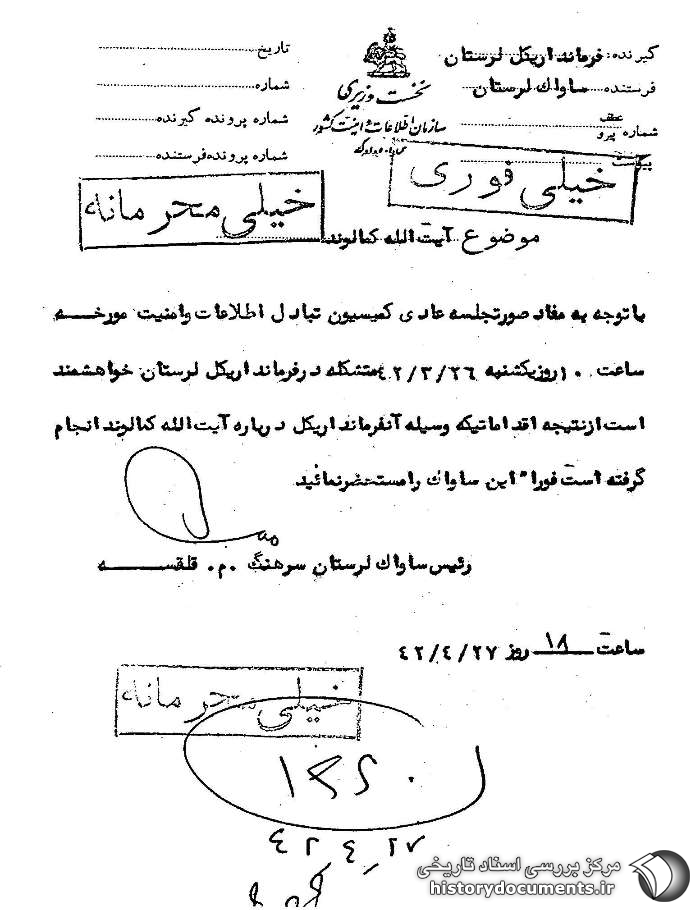 گیرنده: فرمانداریکل لرستان
فرستنده: ساواك لرستان
عطف
شماره پیرو
پیوست
نخست وزیری
سازمان اطلاعات و امنیت کشور
تاریخ
شماره
شماره پرونده گیرنده
شماره پرونده فرستنده
خیلی فوری
خیلی محرمانه
موضوع آیت الله کمالوند
با توجه به مفاد صورتجلسه عادی کمیسیون تبادل اطلاعات وامنیت مورخه
ساعت ۱۰ روزیکشنبه ۴۲/۳/۲۶ متشکله درفرمانداریکل لرستان خواهشمند
است ازنتیجه اقداماتیکه وسیله آنفرمانداریکل درباره آیت الله کمالوند انجام
گرفته است فورا" این ساواك رامستحضرنمائید
رئیس ساواك لرستان سرهنگ م. قلقسه
ساعت ۱۸ روز ۴۲/۴/۲۷
خیلی محرمانه
۴۲٫۴٫۲۷
مرکز بررسی اسناد تاریخی
historydocuments.ir